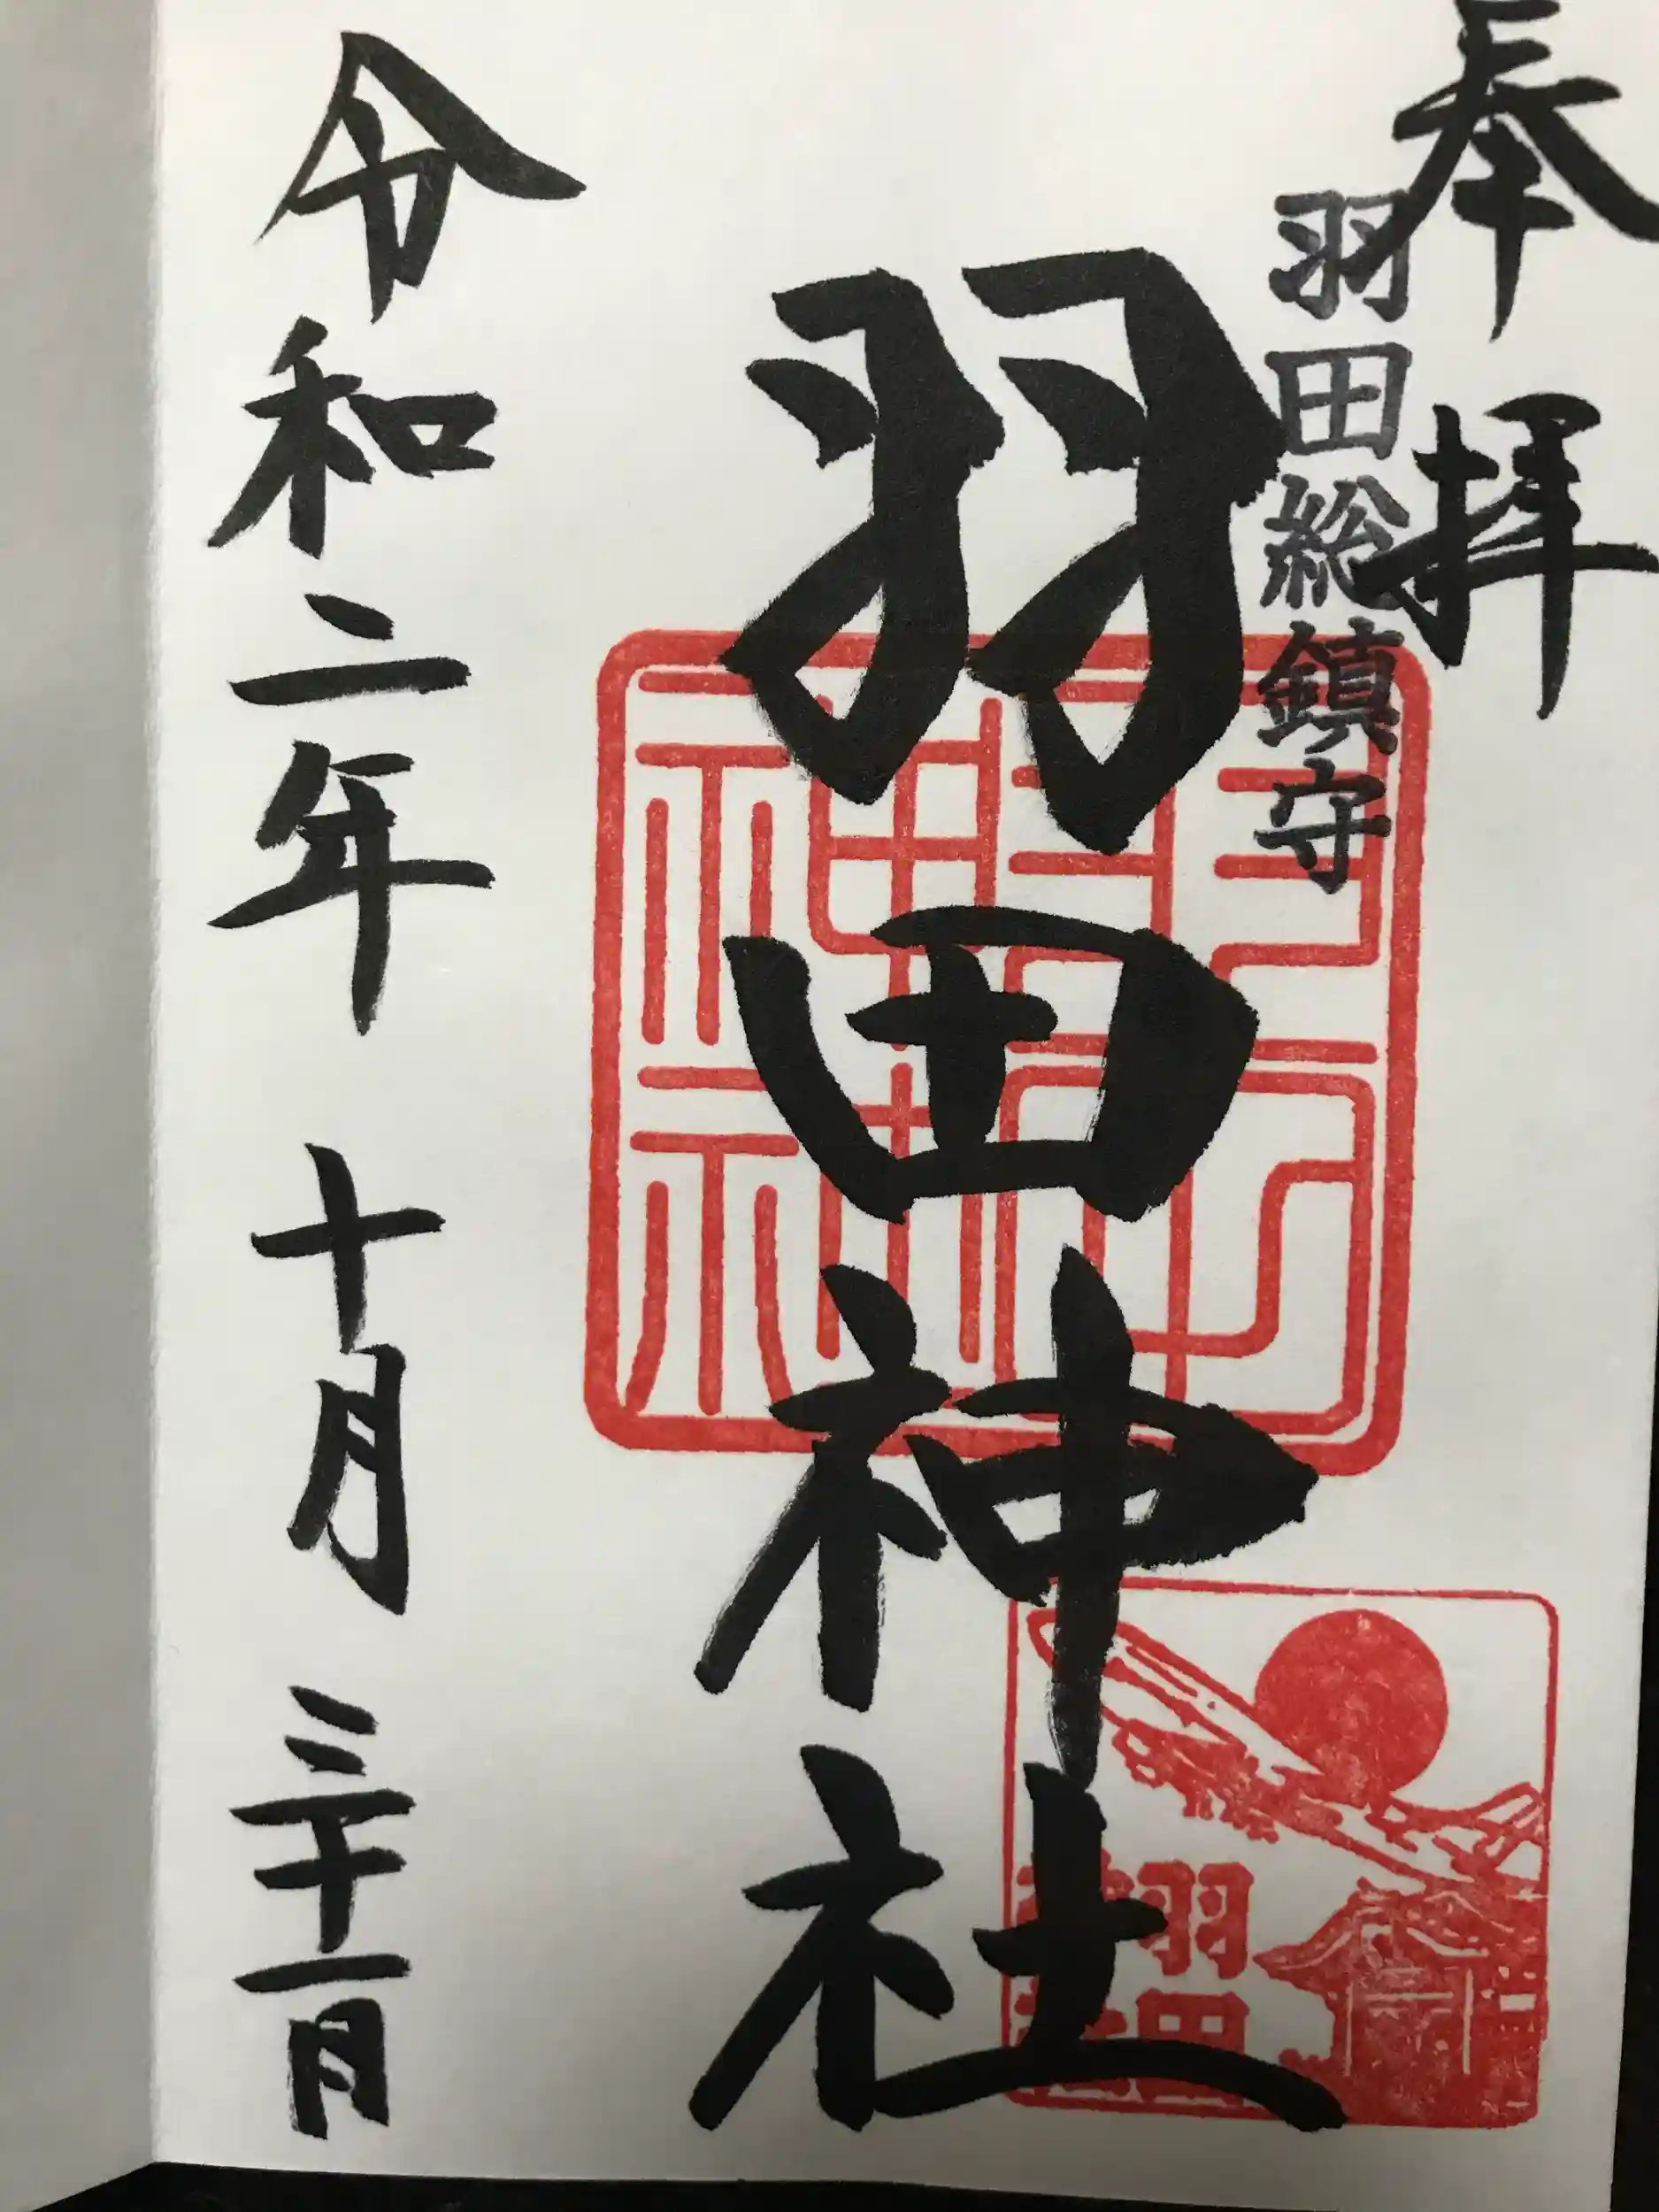 奉拝
羽田総鎮守
羽田神社
羽田神社
羽田神社
令和二年 十月 三十一日